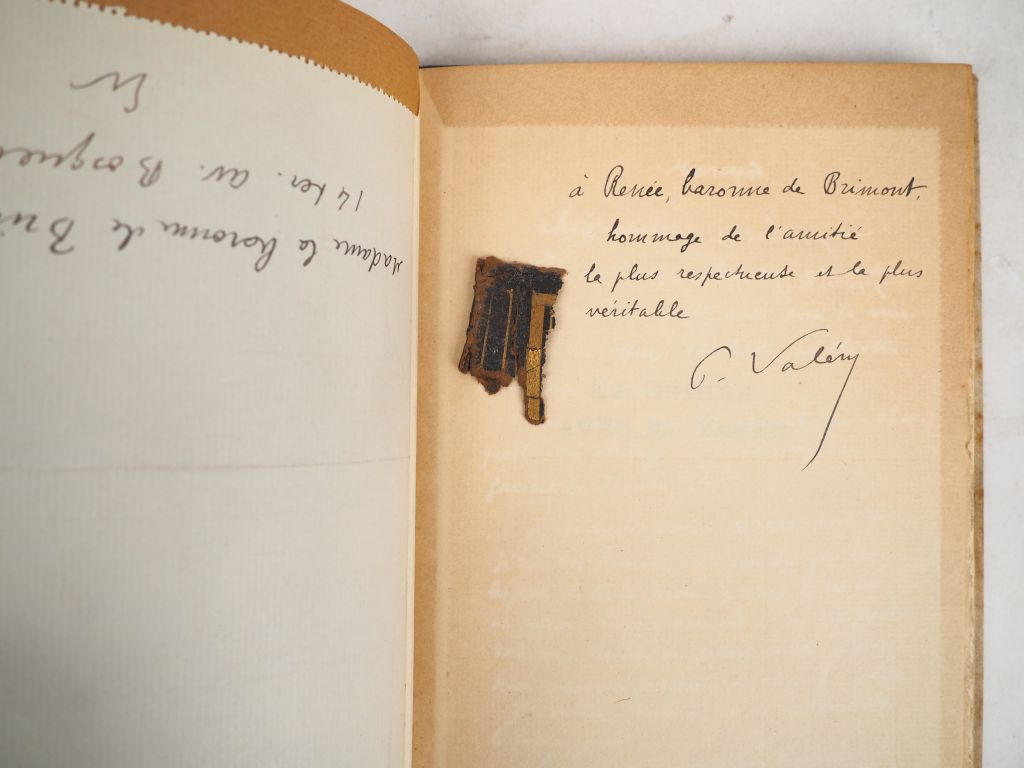 Madame la baronne de
14 ter. av. Bosquet
à Renée, baronne de Brimont,
hommage de l'amitié
la plus respectueuse et la plus
véritable
P. Valéry